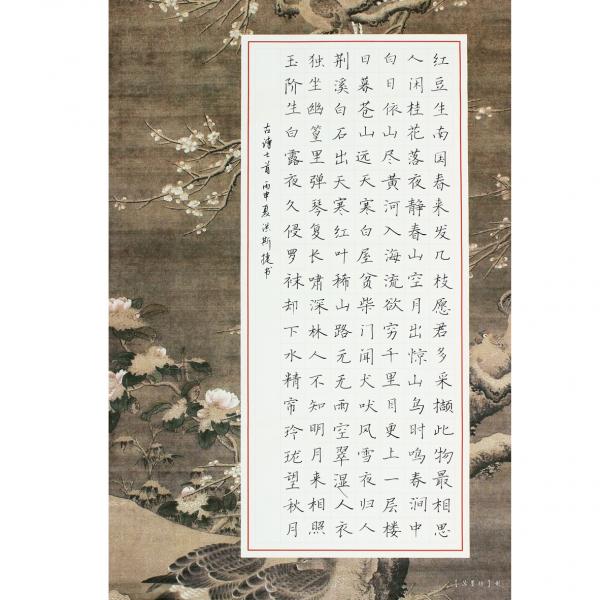 红豆生南国春来发几枝愿君多采撷此物最相思
人闲桂花落夜静春山空月出惊山鸟时鸣春涧中
白日依山尽黄河入海流欲穷千里目更上一层楼
日暮苍山远天寒白屋贫柴门闻犬吠风雪夜归人
荆溪白石出天寒红叶稀山路元无雨空翠湿人衣
独坐幽篁里弹琴复长啸深林人不知明月来相照
玉阶生白露夜久侵罗袜却下水精帘玲珑望秋月
古诗七首丙申夏洪斯捷书